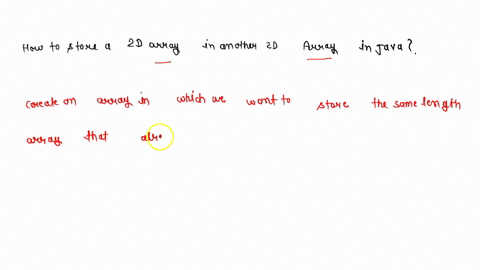 How to store a 2D array in another 2D Array in java?.
create an array in which we want to store the same length
array that alr